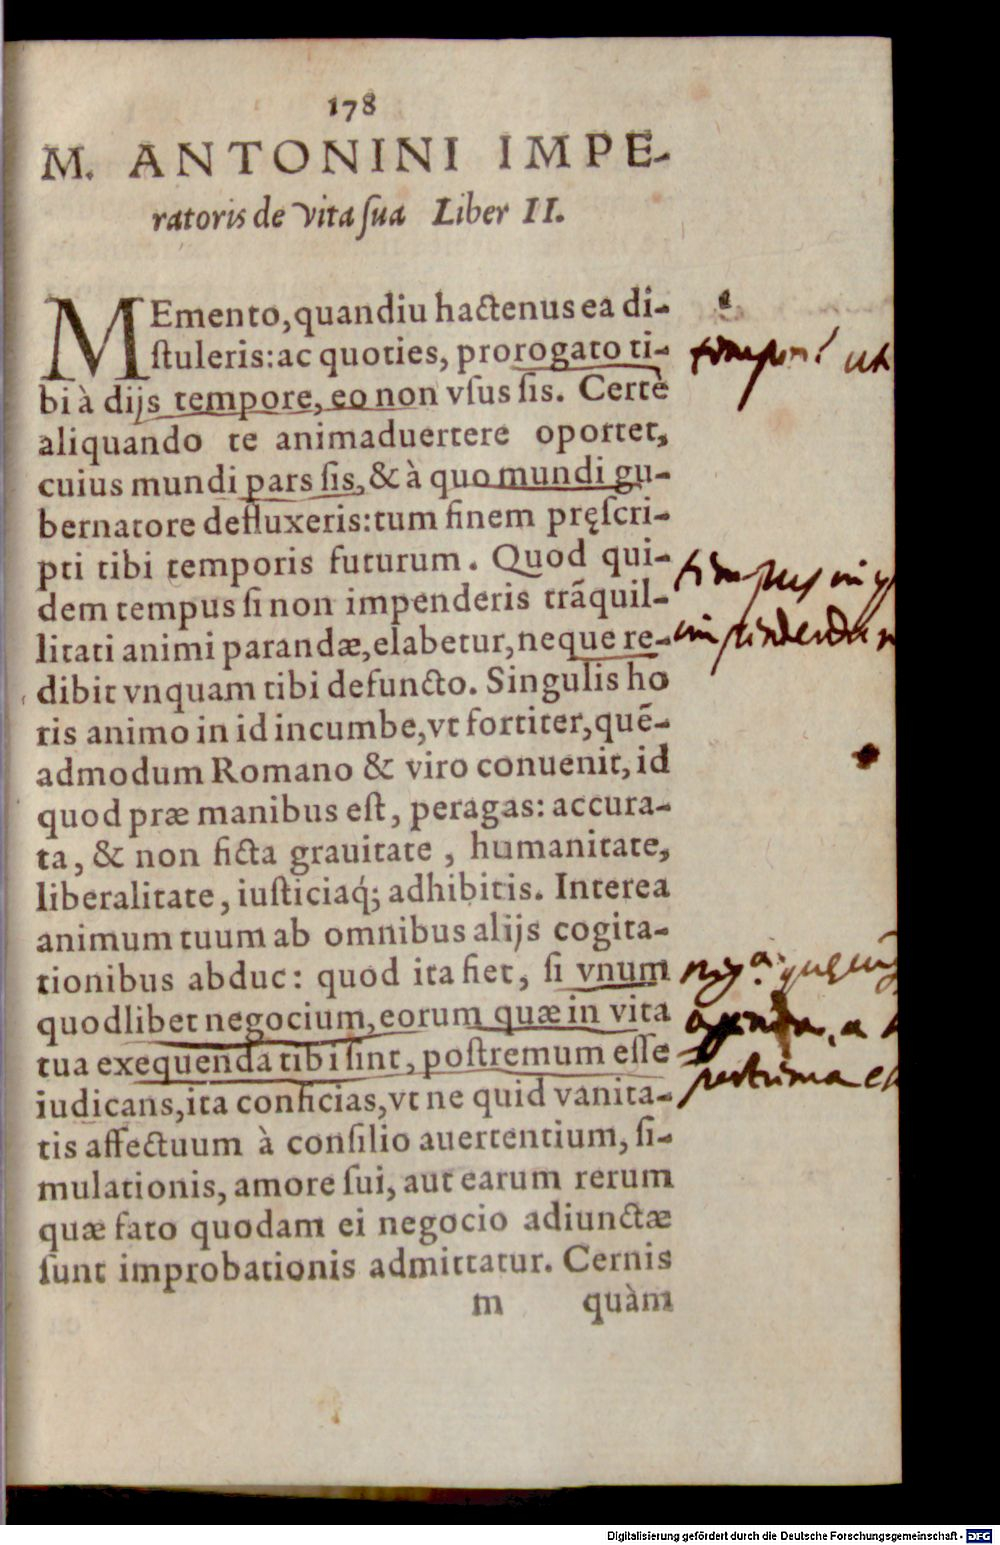 178
M. ANTONINI IMPE-
ratoris de vita ſua Liber II.
MEmento, quandiu hactenus ea di-
ſtuleris: ac quoties, prorogato ti-
bi à dijs tempore, eo non vſus ſis. Certè
aliquando te animaduertere oportet,
cuius mundi pars ſis, & à quo mundi gu-
bernatore defluxeris: tum finem pręſcri-
pti tibi temporis futurum. Quod qui-
dem tempus ſi non impenderis trãquil-
litati animi parandæ, elabetur, neque re-
dibit vnquam tibi defuncto. Singulis ho
ris animo in id incumbe, vt fortiter, quẽ-
admodum Romano & viro conuenit, id
quod præ manibus eſt, peragas: accura-
ta, & non ficta grauitate, humanitate,
liberalitate, iuſticiaq́; adhibitis. Interea
animum tuum ab omnibus alijs cogita-
tionibus abduc: quod ita fiet, ſi vnum
quodlibet negocium, eorum quæ in vita
tua exequenda tibi ſint, poſtremum eſſe
iudicans, ita conficias, vt ne quid vanita-
tis affectuum à conſilio auertentium, ſi-
mulationis, amore ſui, aut earum rerum
quæ fato quodam ei negocio adiunctæ
ſunt improbationis admittatur. Cernis
m quàm
tempus in
Digitalisierung gefördert durch die Deutsche Forschungsgemeinschaft - DFG